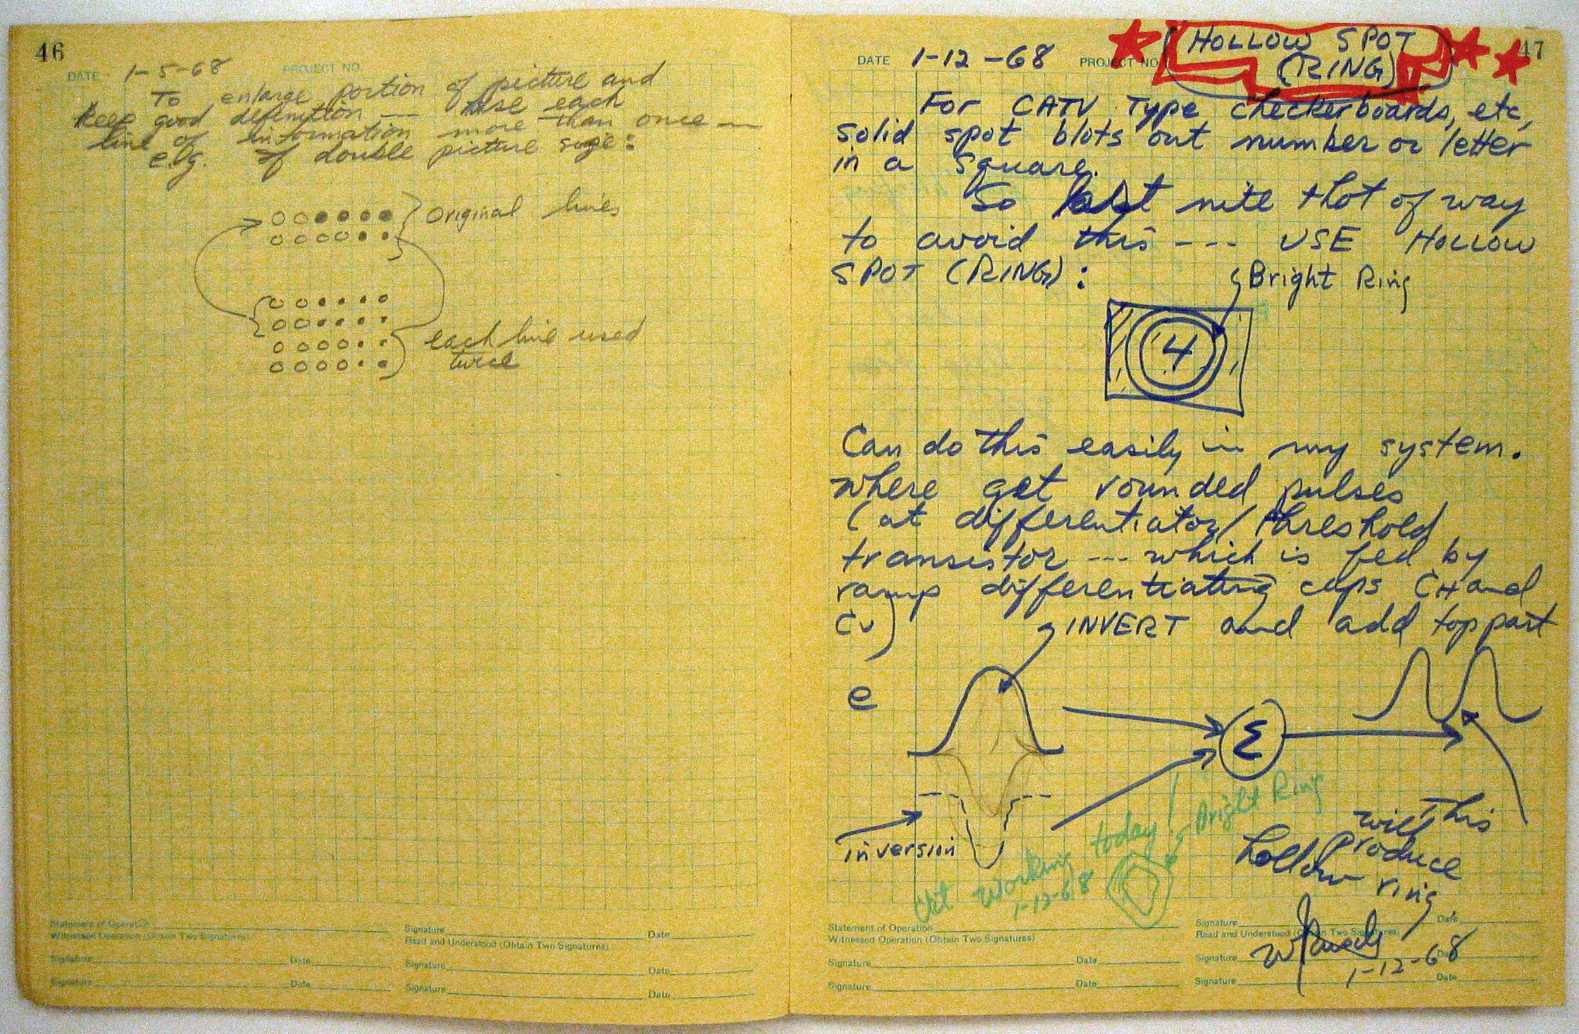 46
DATE 1-5-68 PROJECT NO.
To enlarge portion of picture and
keep good definition --- use each
line of information more than once --
e.g. if double picture size:
original lines
each line used
twice
Statement of Operation
Witnessed Operation (Obtain Two Signatures)
Signature Date
Signature Date
Signature Date
Read and Understood (Obtain Two Signatures)
Signature Date
Signature Date
47
DATE 1-12-68 PROJECT NO.
HOLLOW SPOT
(RING)
For CATV Type checkerboards, etc,
solid spot blots out number or letter
in a square.
So last nite thot of way
to avoid this --- USE HOLLOW
SPOT (RING):
Bright Ring
4
Can do this easily in my system.
where get rounded pulses
(at differentiator/threshold
transistor --- which is fed by
ramp differentiating caps CH and
Cv)
INVERT and add top part
e
Σ
inversion
This
will
produce
hollow ring
Ckt working today!
1-12-68
Bright Ring
Statement of Operation
Witnessed Operation (Obtain Two Signatures)
Signature Date
Signature Date
Signature Date
Read and Understood (Obtain Two Signatures)
Signature Date
1-12-68
Signature Date